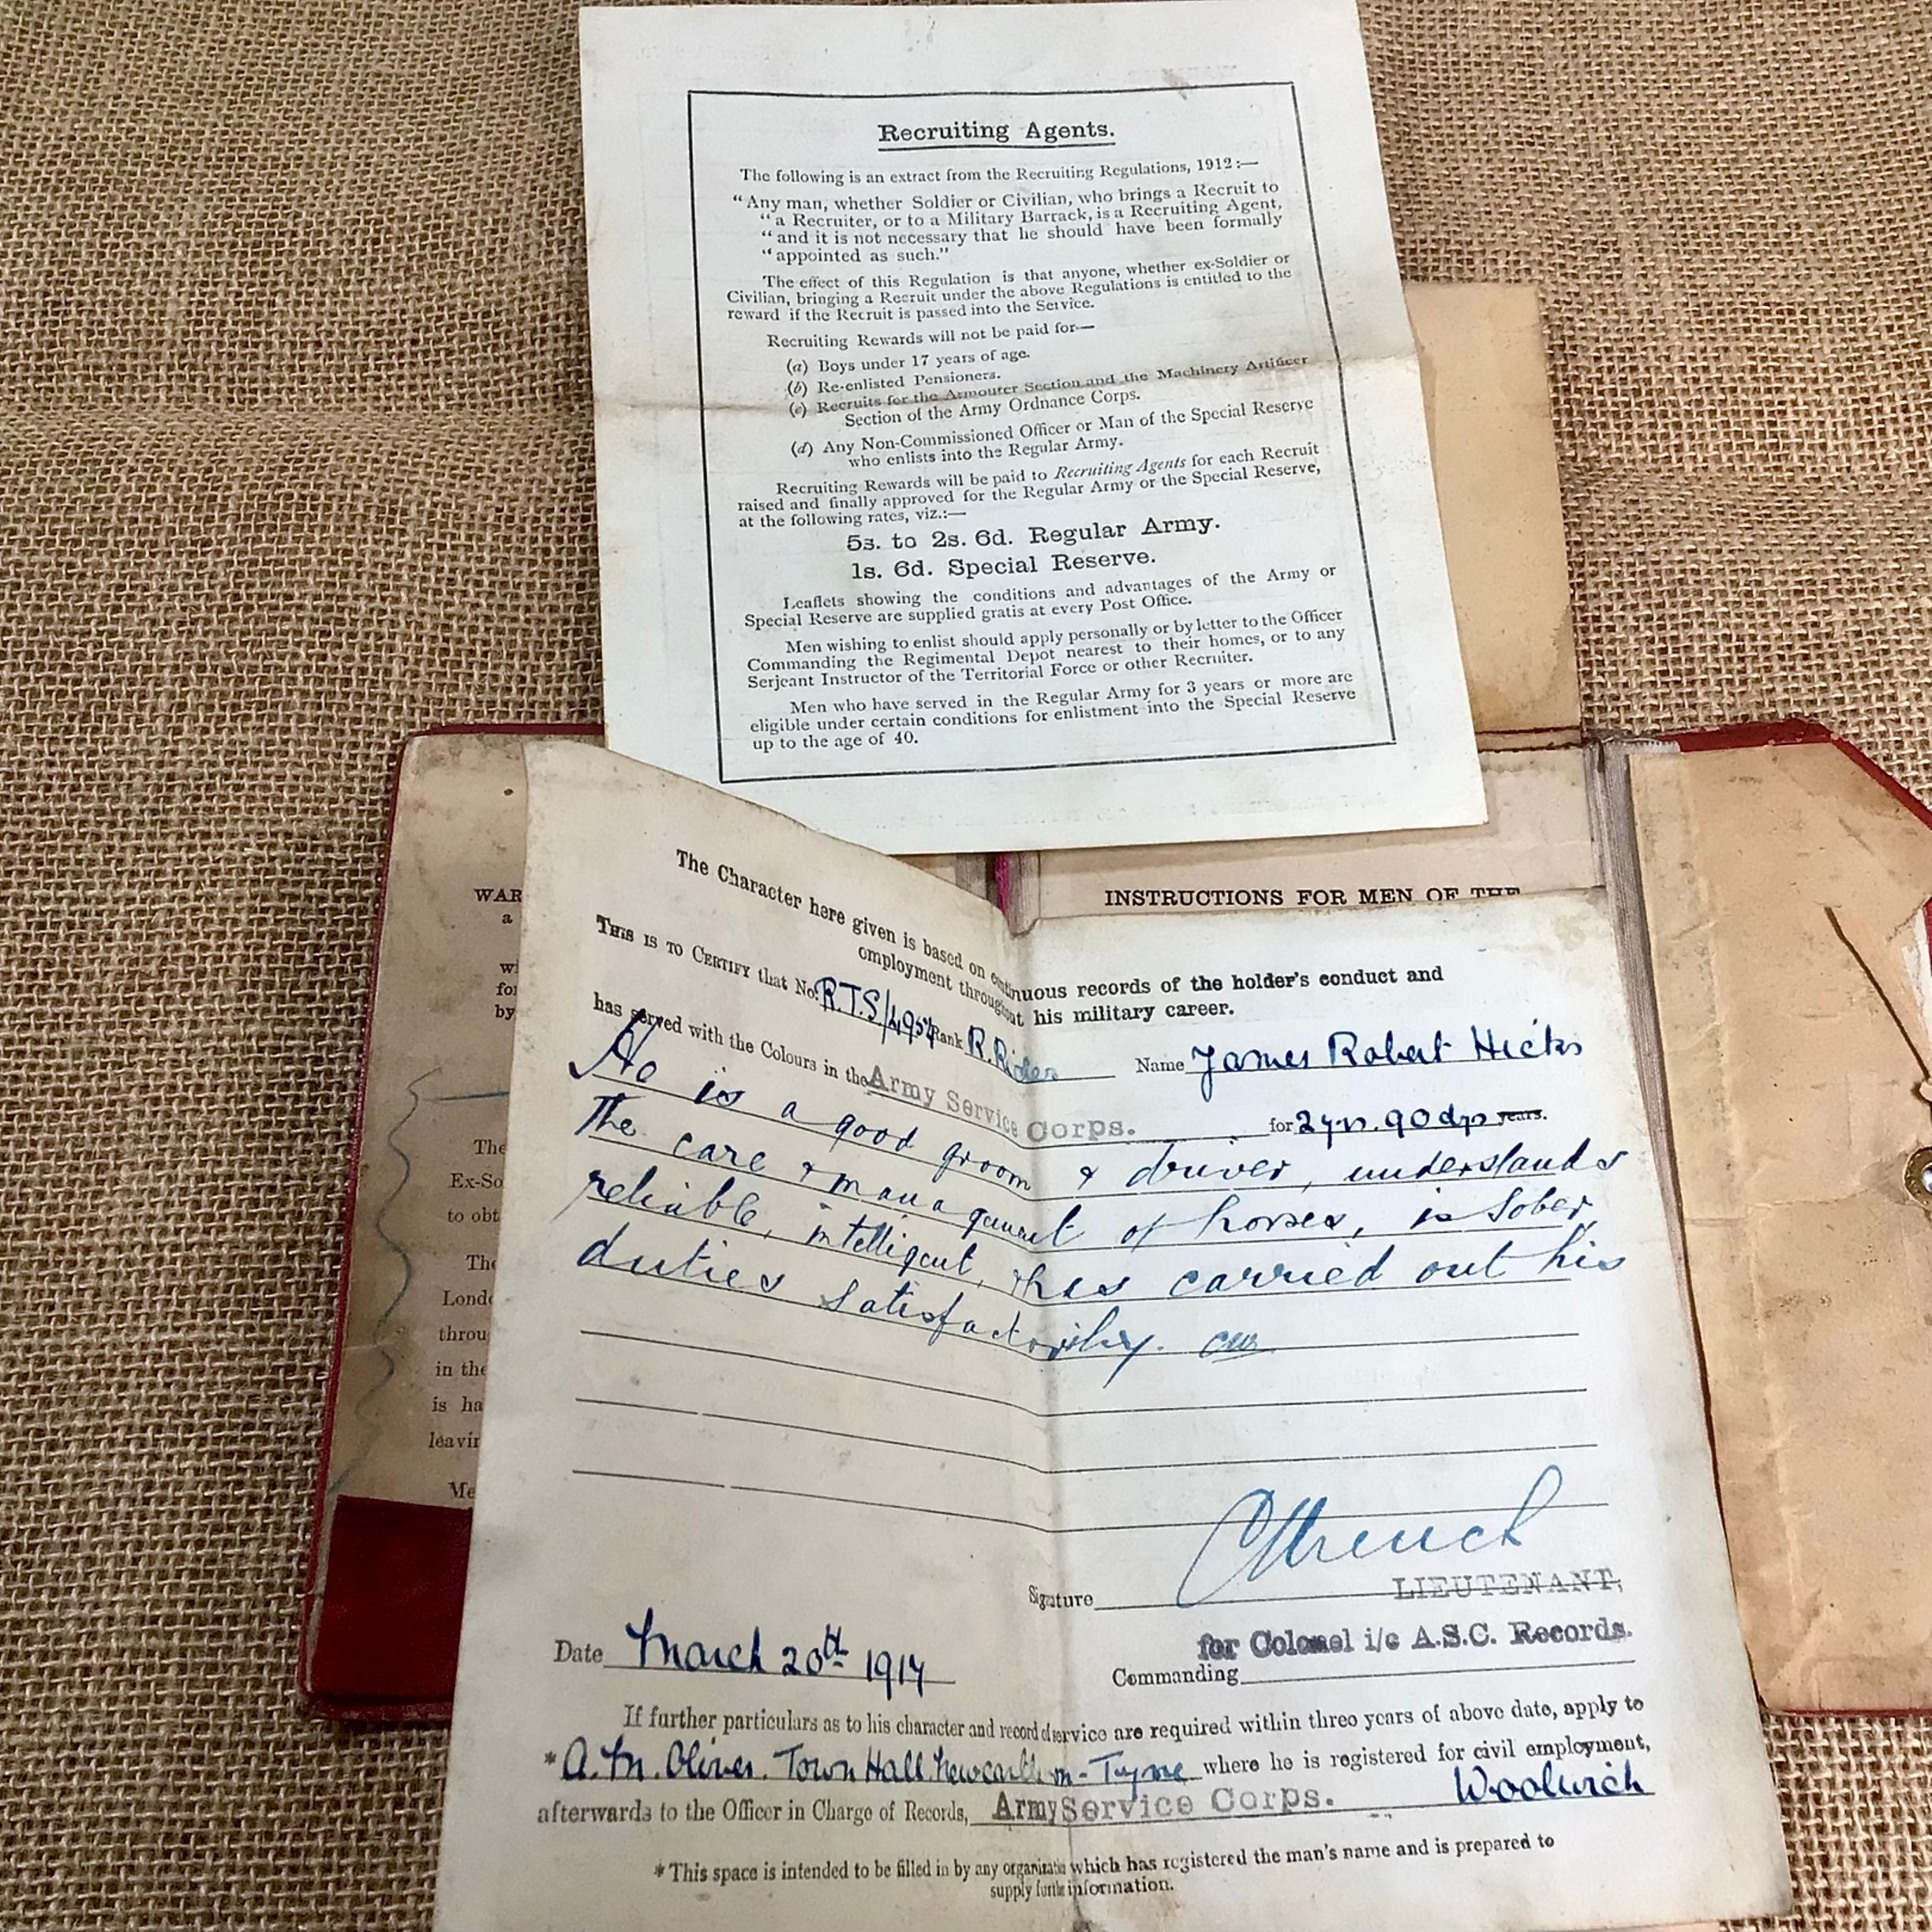 Recruiting Agents.
The following is an extract from the Recruiting Regulations, 1912:—
"Any man, whether Soldier or Civilian, who brings a Recruit to
"a Recruiter, or to a Military Barrack, is a Recruiting Agent,
"and it is not necessary that he should have been formally
"appointed as such."
The effect of this Regulation is that anyone, whether ex-Soldier or
Civilian, bringing a Recruit under the above Regulations is entitled to the
reward if the Recruit is passed into the Service.
Recruiting Rewards will not be paid for—
(a) Boys under 17 years of age.
(b) Re-enlisted Pensioners.
(c) Recruits for the Armourer Section and the Machinery Artificer
Section of the Army Ordnance Corps.
(d) Any Non-Commissioned Officer or Man of the Special Reserve
who enlists into the Regular Army.
Recruiting Rewards will be paid to Recruiting Agents for each Recruit
raised and finally approved for the Regular Army or the Special Reserve,
at the following rates, viz.:—
5s. to 2s. 6d. Regular Army.
1s. 6d. Special Reserve.
Leaflets showing the conditions and advantages of the Army or
Special Reserve are supplied gratis at every Post Office.
Men wishing to enlist should apply personally or by letter to the Officer
Commanding the Regimental Depot nearest to their homes, or to any
Serjeant Instructor of the Territorial Force or other Recruiter.
Men who have served in the Regular Army for 3 years or more are
eligible under certain conditions for enlistment into the Special Reserve
up to the age of 40.
INSTRUCTIONS FOR MEN OF THE
WAR
a
wh
for
by
The
Ex-So
to obt
The
Londo
throu
in the
is ha
leavin
Me
The Character here given is based on continuous records of the holder's conduct and
employment throughout his military career.
THIS IS TO CERTIFY that No. R.T.S/4954 Rank R.Rider Name James Robert Hicks
has served with the Colours in the Army Service Corps. for 2 yrs. 90 dys years.
He is a good groom & driver, understands
The care & management of horses, is sober,
reliable, intelligent, & has carried out his
duties satisfactorily.
Signature LIEUTENANT,
for Colonel i/c A.S.C. Records.
Date March 20th 1914 Commanding
If further particulars as to his character and record of service are required within three years of above date, apply to
* A. M. Oliver. Town Hall. Newcastle on-Tyne where he is registered for civil employment,
afterwards to the Officer in Charge of Records, Army Service Corps. Woolwich
* This space is intended to be filled in by any organization which has registered the man's name and is prepared to
supply further information.